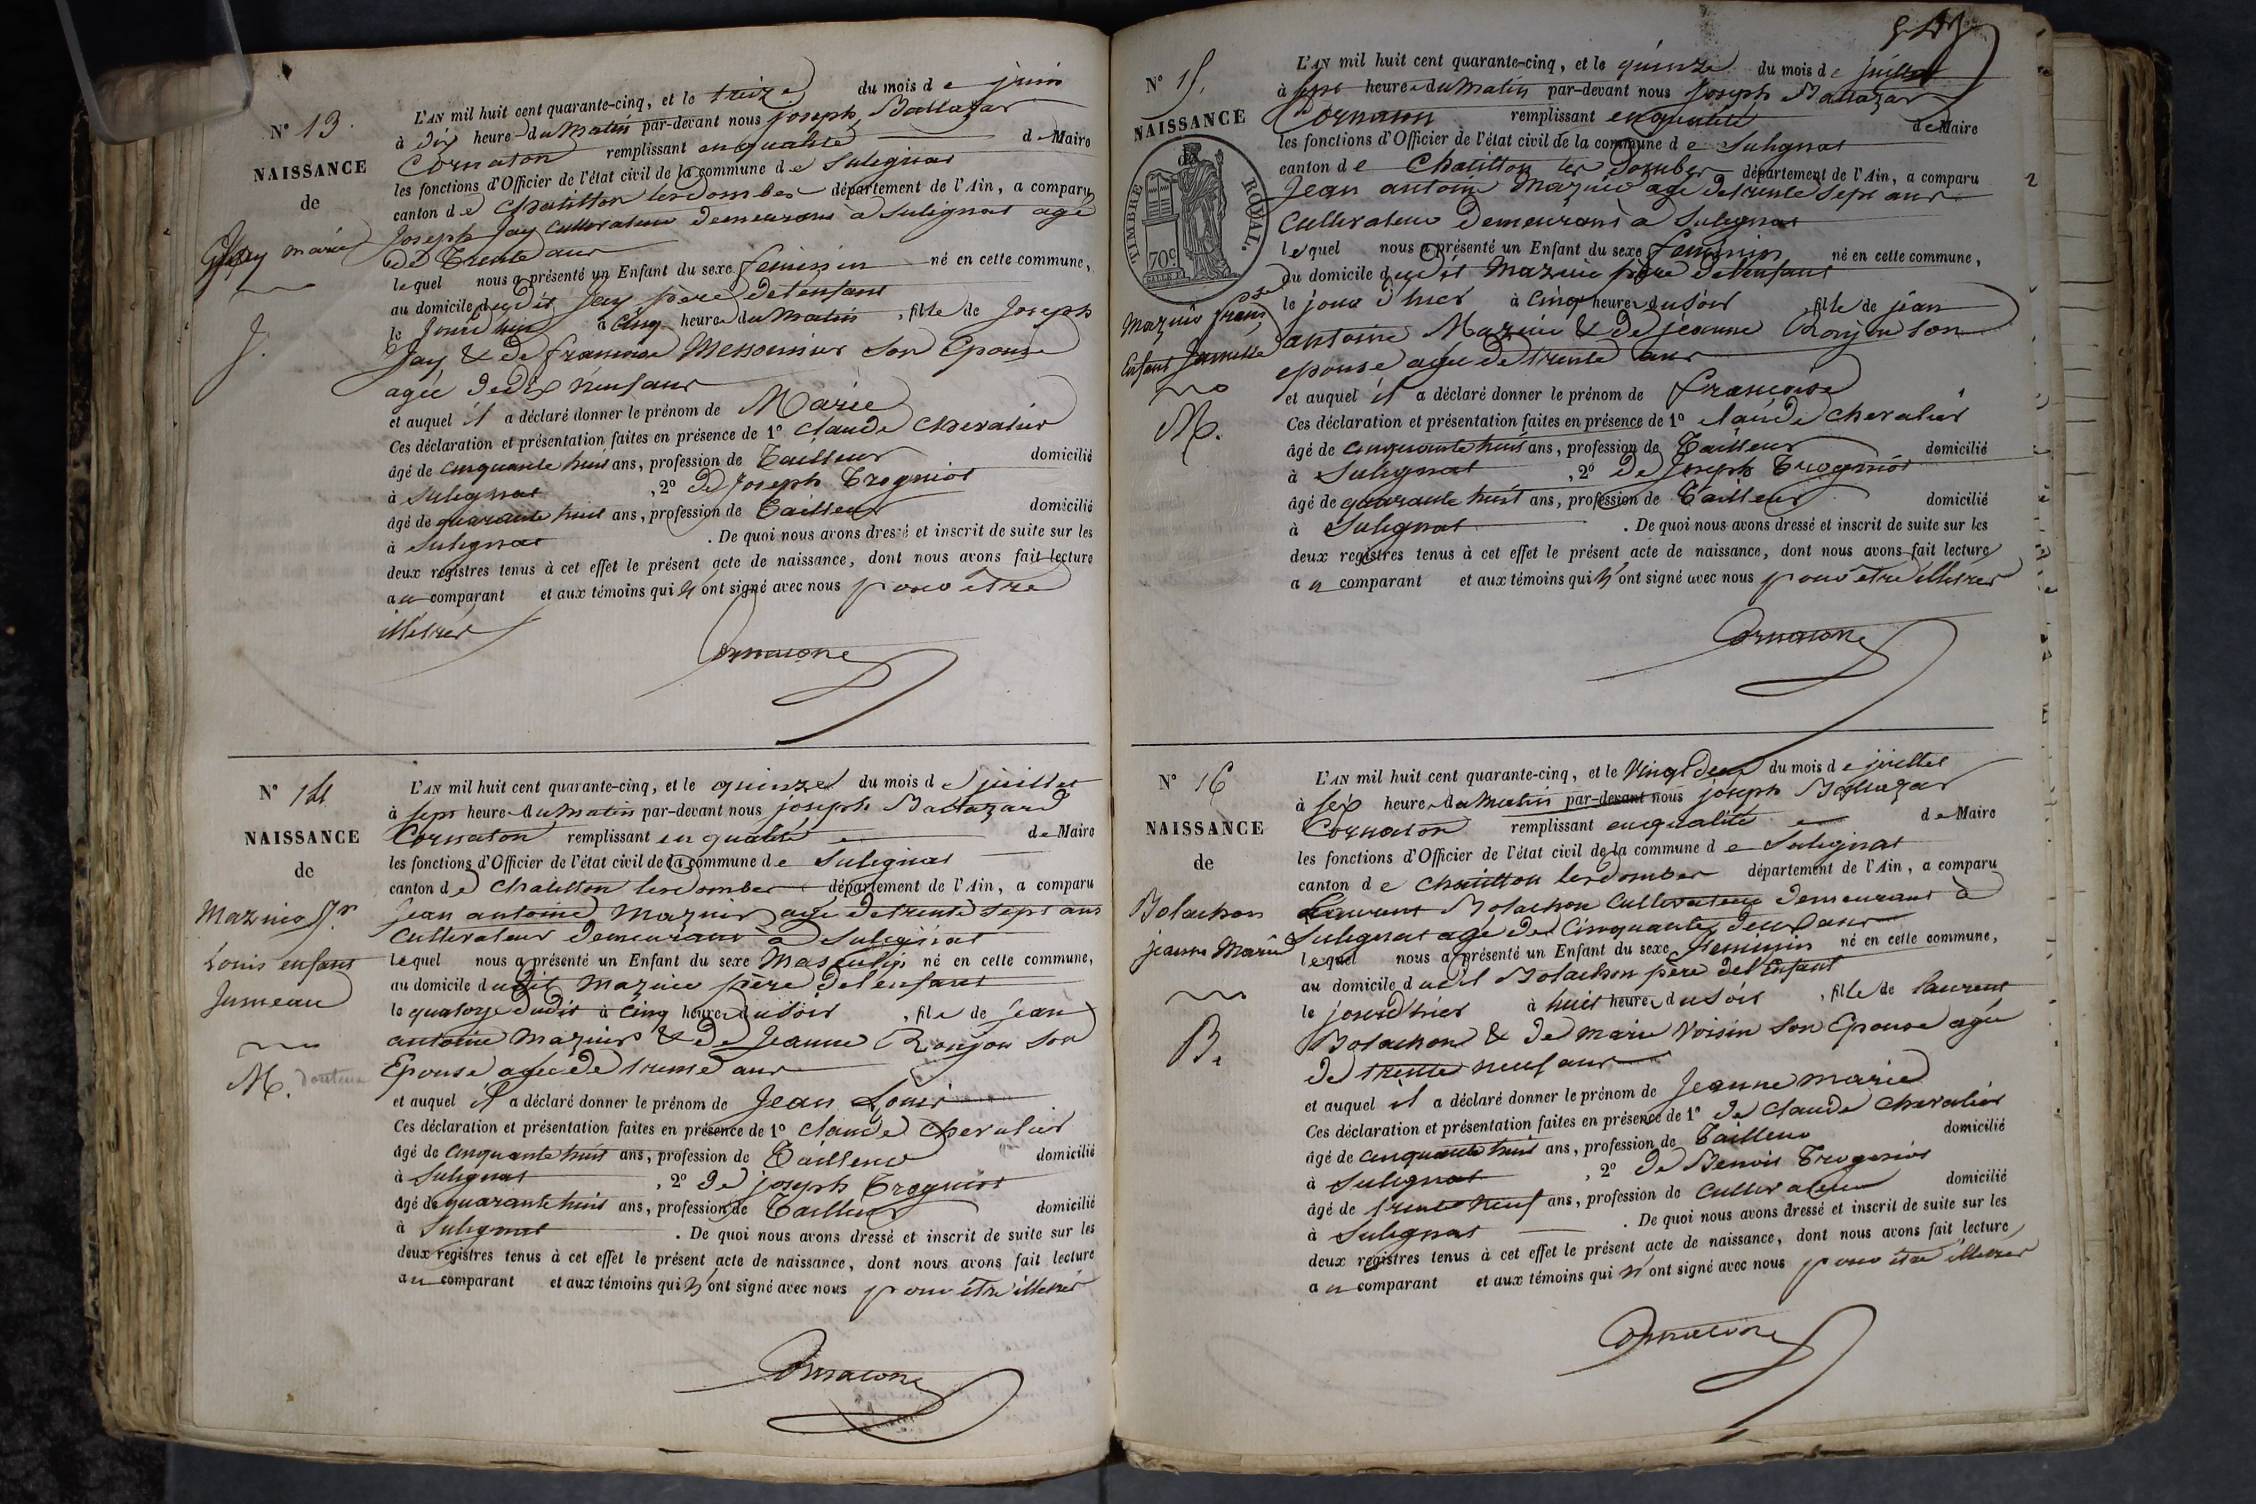 N° 13.
NAISSANCE
de
Jay marie
J.
L'AN mil huit cent quarante-cinq, et le treize du mois de juin
à dix heure du Matin par-devant nous joseph Baltazar
Cornaton remplissant en qualité de Maire
les fonctions d'Officier de l'état civil de la commune de Sulignat
canton de Chatillon les dombes département de l'Ain, a comparu
Joseph Jay Cultivateur demeurant à Sulignat agé
de trente ans
lequel nous a présenté un Enfant du sexe feminin né en cette commune,
au domicile dudit Jay père de l'enfant
le jourd'hui à cinq heure du Matin, fille de Joseph
Jay & de francoise Messonnier son Epouse
agée de dix neuf ans
et auquel il a déclaré donner le prénom de Marie
Ces déclaration et présentation faites en présence de 1° Claude Chevalier
âgé de cinquante huit ans, profession de Tailleur domicilié
à Sulignat, 2° de Joseph Trogniot
âgé de quarante huit ans, profession de Tailleur domicilié
à Sulignat. De quoi nous avons dressé et inscrit de suite sur les
deux registres tenus à cet effet le présent acte de naissance, dont nous avons fait lecture
au comparant et aux témoins qui n'ont signé avec nous pour être
illétrés
Cornaton
N° 14
NAISSANCE
de
Mazuir Jn
Louis enfant
Jumeau
M. douteux
L'AN mil huit cent quarante-cinq, et le quinze du mois de juillet
à sept heure du Matin par-devant nous joseph Baltazard
Cornaton remplissant en qualité de Maire
les fonctions d'Officier de l'état civil de la commune de Sulignat
canton de Chatillon les dombes département de l'Ain, a comparu
jean antoine Mazuir agé de trente sept ans
Cultivateur demeurant à Sulignat
lequel nous a présenté un Enfant du sexe Masculin né en cette commune,
au domicile dudit Mazuir père de l'enfant
le quatorze dudit à cinq heure du Soir, fils de jean
antoine Mazuir & de Jeanne Ronjon son
Epouse agée de trente ans
et auquel il a déclaré donner le prénom de Jean Louis
Ces déclaration et présentation faites en présence de 1° Claude Chevalier
âgé de cinquante huit ans, profession de Tailleur domicilié
à Sulignat, 2° de joseph Trogniot
âgé de quarante huit ans, profession de Tailleur domicilié
à Sulignat. De quoi nous avons dressé et inscrit de suite sur les
deux registres tenus à cet effet le présent acte de naissance, dont nous avons fait lecture
au comparant et aux témoins qui n'ont signé avec nous pour être illétrés
Cornaton
N° 15.
NAISSANCE
de
TIMBRE ROYAL.
70c
Mazuir frans
se
Enfant Jumelle
M.
L'AN mil huit cent quarante-cinq, et le quinze du mois de juillet
à sept heure du Matin par-devant nous joseph Baltazar
Cornaton remplissant en qualité de Maire
les fonctions d'Officier de l'état civil de la commune de Sulignat
canton de Chatillon les Dombes département de l'Ain, a comparu
Jean antoine Mazuir agé de trente sept ans
Cultivateur demeurant à Sulignat
lequel nous a présenté un Enfant du sexe feminin né en cette commune,
au domicile dudit Mazuir père de l'enfant
le jour d'hier à cinq heure du Soir, fille de jean
antoine Mazuir & de jeanne Ronjon son
epouse agée de trente ans
et auquel il a déclaré donner le prénom de francoise
Ces déclaration et présentation faites en présence de 1° claude chevalier
âgé de cinquante huit ans, profession de Tailleur domicilié
à Sulignat, 2° de Joseph Trogniot
âgé de quarante huit ans, profession de Tailleur domicilié
à Sulignat. De quoi nous avons dressé et inscrit de suite sur les
deux registres tenus à cet effet le présent acte de naissance, dont nous avons fait lecture
au comparant et aux témoins qui n'ont signé avec nous pour être illétrés
Cornaton
N° 16
NAISSANCE
de
Bolachon
jeanne Marie
B.
L'AN mil huit cent quarante-cinq, et le Vingt deux du mois de juillet
à six heure du Matin par-devant nous joseph Baltazar
Cornaton remplissant en qualité de Maire
les fonctions d'Officier de l'état civil de la commune de Sulignat
canton de Chatillon les dombes département de l'Ain, a comparu
Laurent Bolachon Cultivateur demeurant à
Sulignat agé de Cinquante deux ans
lequel nous a présenté un Enfant du sexe Feminin né en cette commune,
au domicile dudit Bolachon père de l'Enfant
le jour d'hier à huit heure du Soir, fille de laurent
Bolachon & de marie Voisin son Epouse agée
de trente neuf ans
et auquel il a déclaré donner le prénom de Jeanne marie
Ces déclaration et présentation faites en présence de 1° de Claude Chevalier
âgé de cinquante huit ans, profession de Tailleur domicilié
à Sulignat, 2° de Benoit Trogniot
âgé de trente Neuf ans, profession de Cultivateur domicilié
à Sulignat. De quoi nous avons dressé et inscrit de suite sur les
deux registres tenus à cet effet le présent acte de naissance, dont nous avons fait lecture
au comparant et aux témoins qui n'ont signé avec nous pour être illétrés
Cornaton